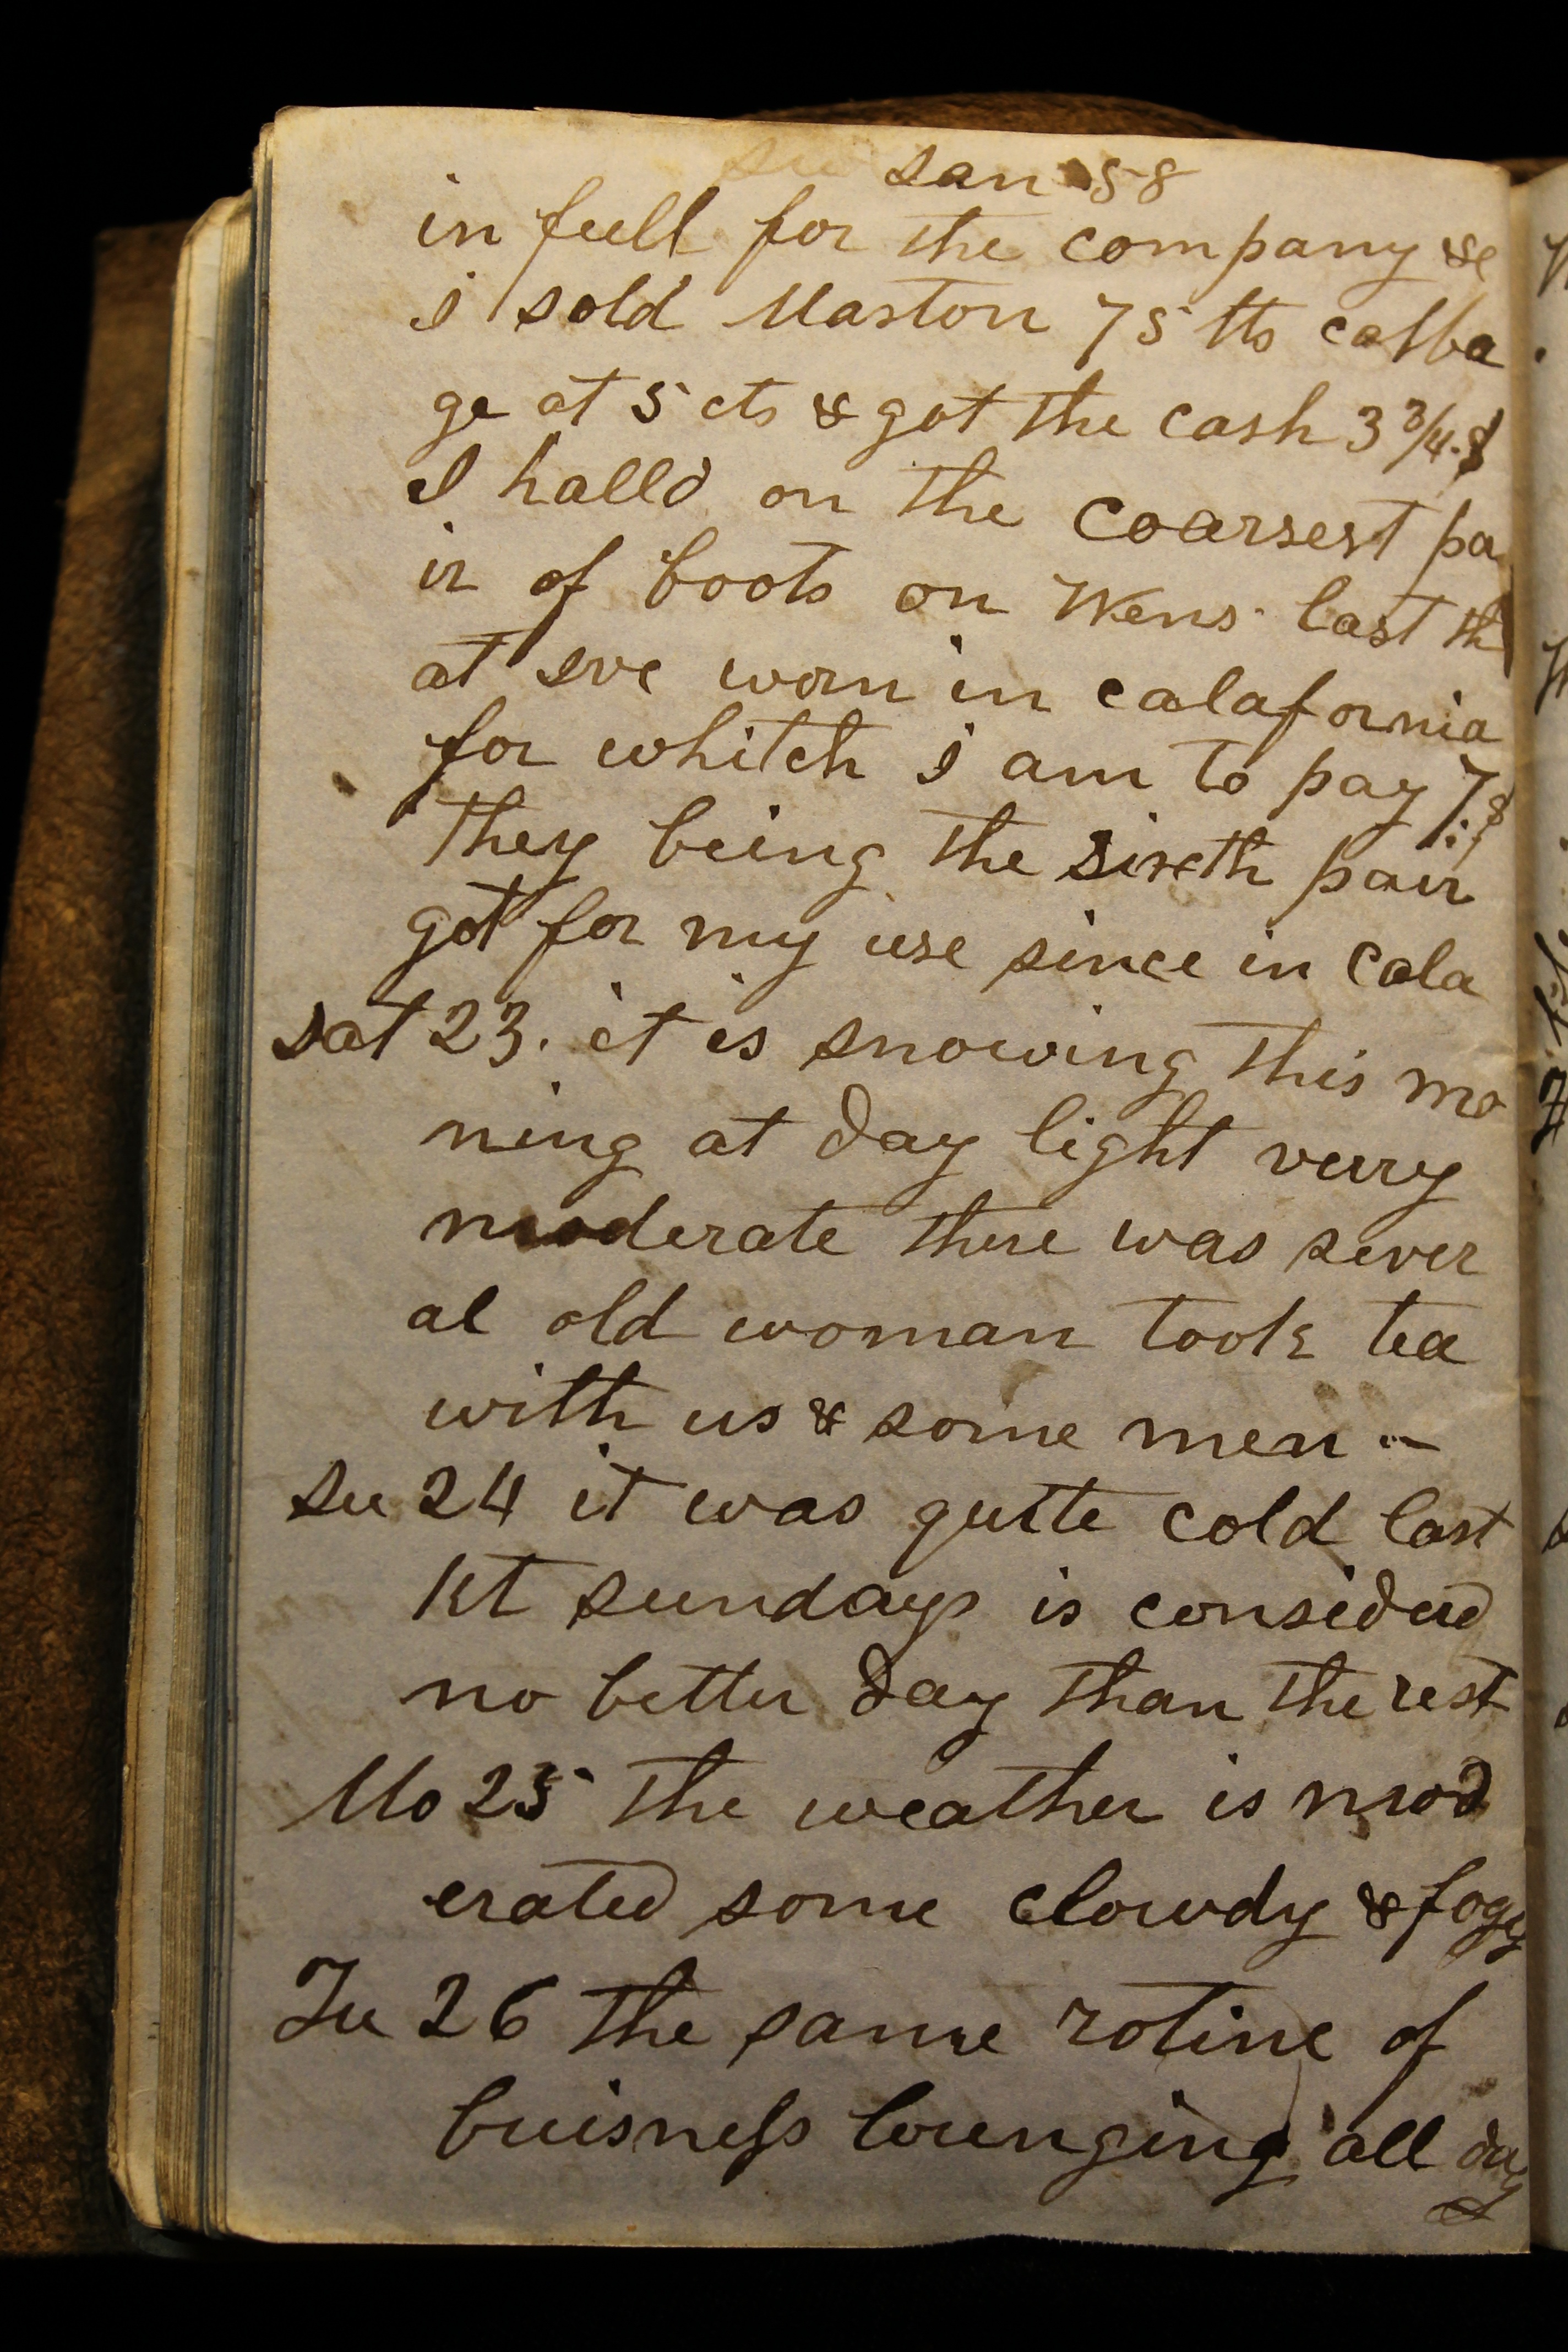 Jan 58
in full for the company &c
I sold Maston 75 lbs cabba
ge at 5 cts & got the cash 3 3/4.$
I halld on the coarsest pa
ir of boots on Wens. last th
at Ive worn in calafornia
for whitch I am to pay 7.$
they being the sixth pair
got for my use since in Cala
Sat 23. it is snowing this mo
ning at day light verry
moderate there was sever
al old woman took tea
with us & some men -
Su 24 it was quite cold last
Nt sundays is considerd
no better day than the rest
Mo 25 the weather is mod
erated some clowdy & fogy
Tu 26 the same rotine of
buisness lounging all day
&